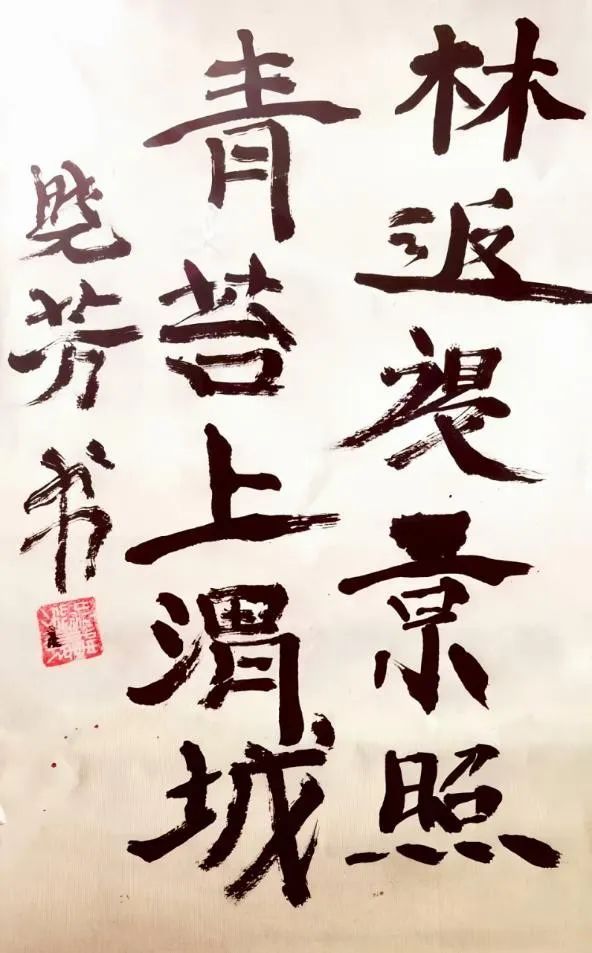 林返景照
青苔上渭城
晓芳书